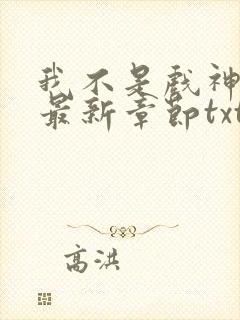 我不是戏神
最新章节txt
高洪